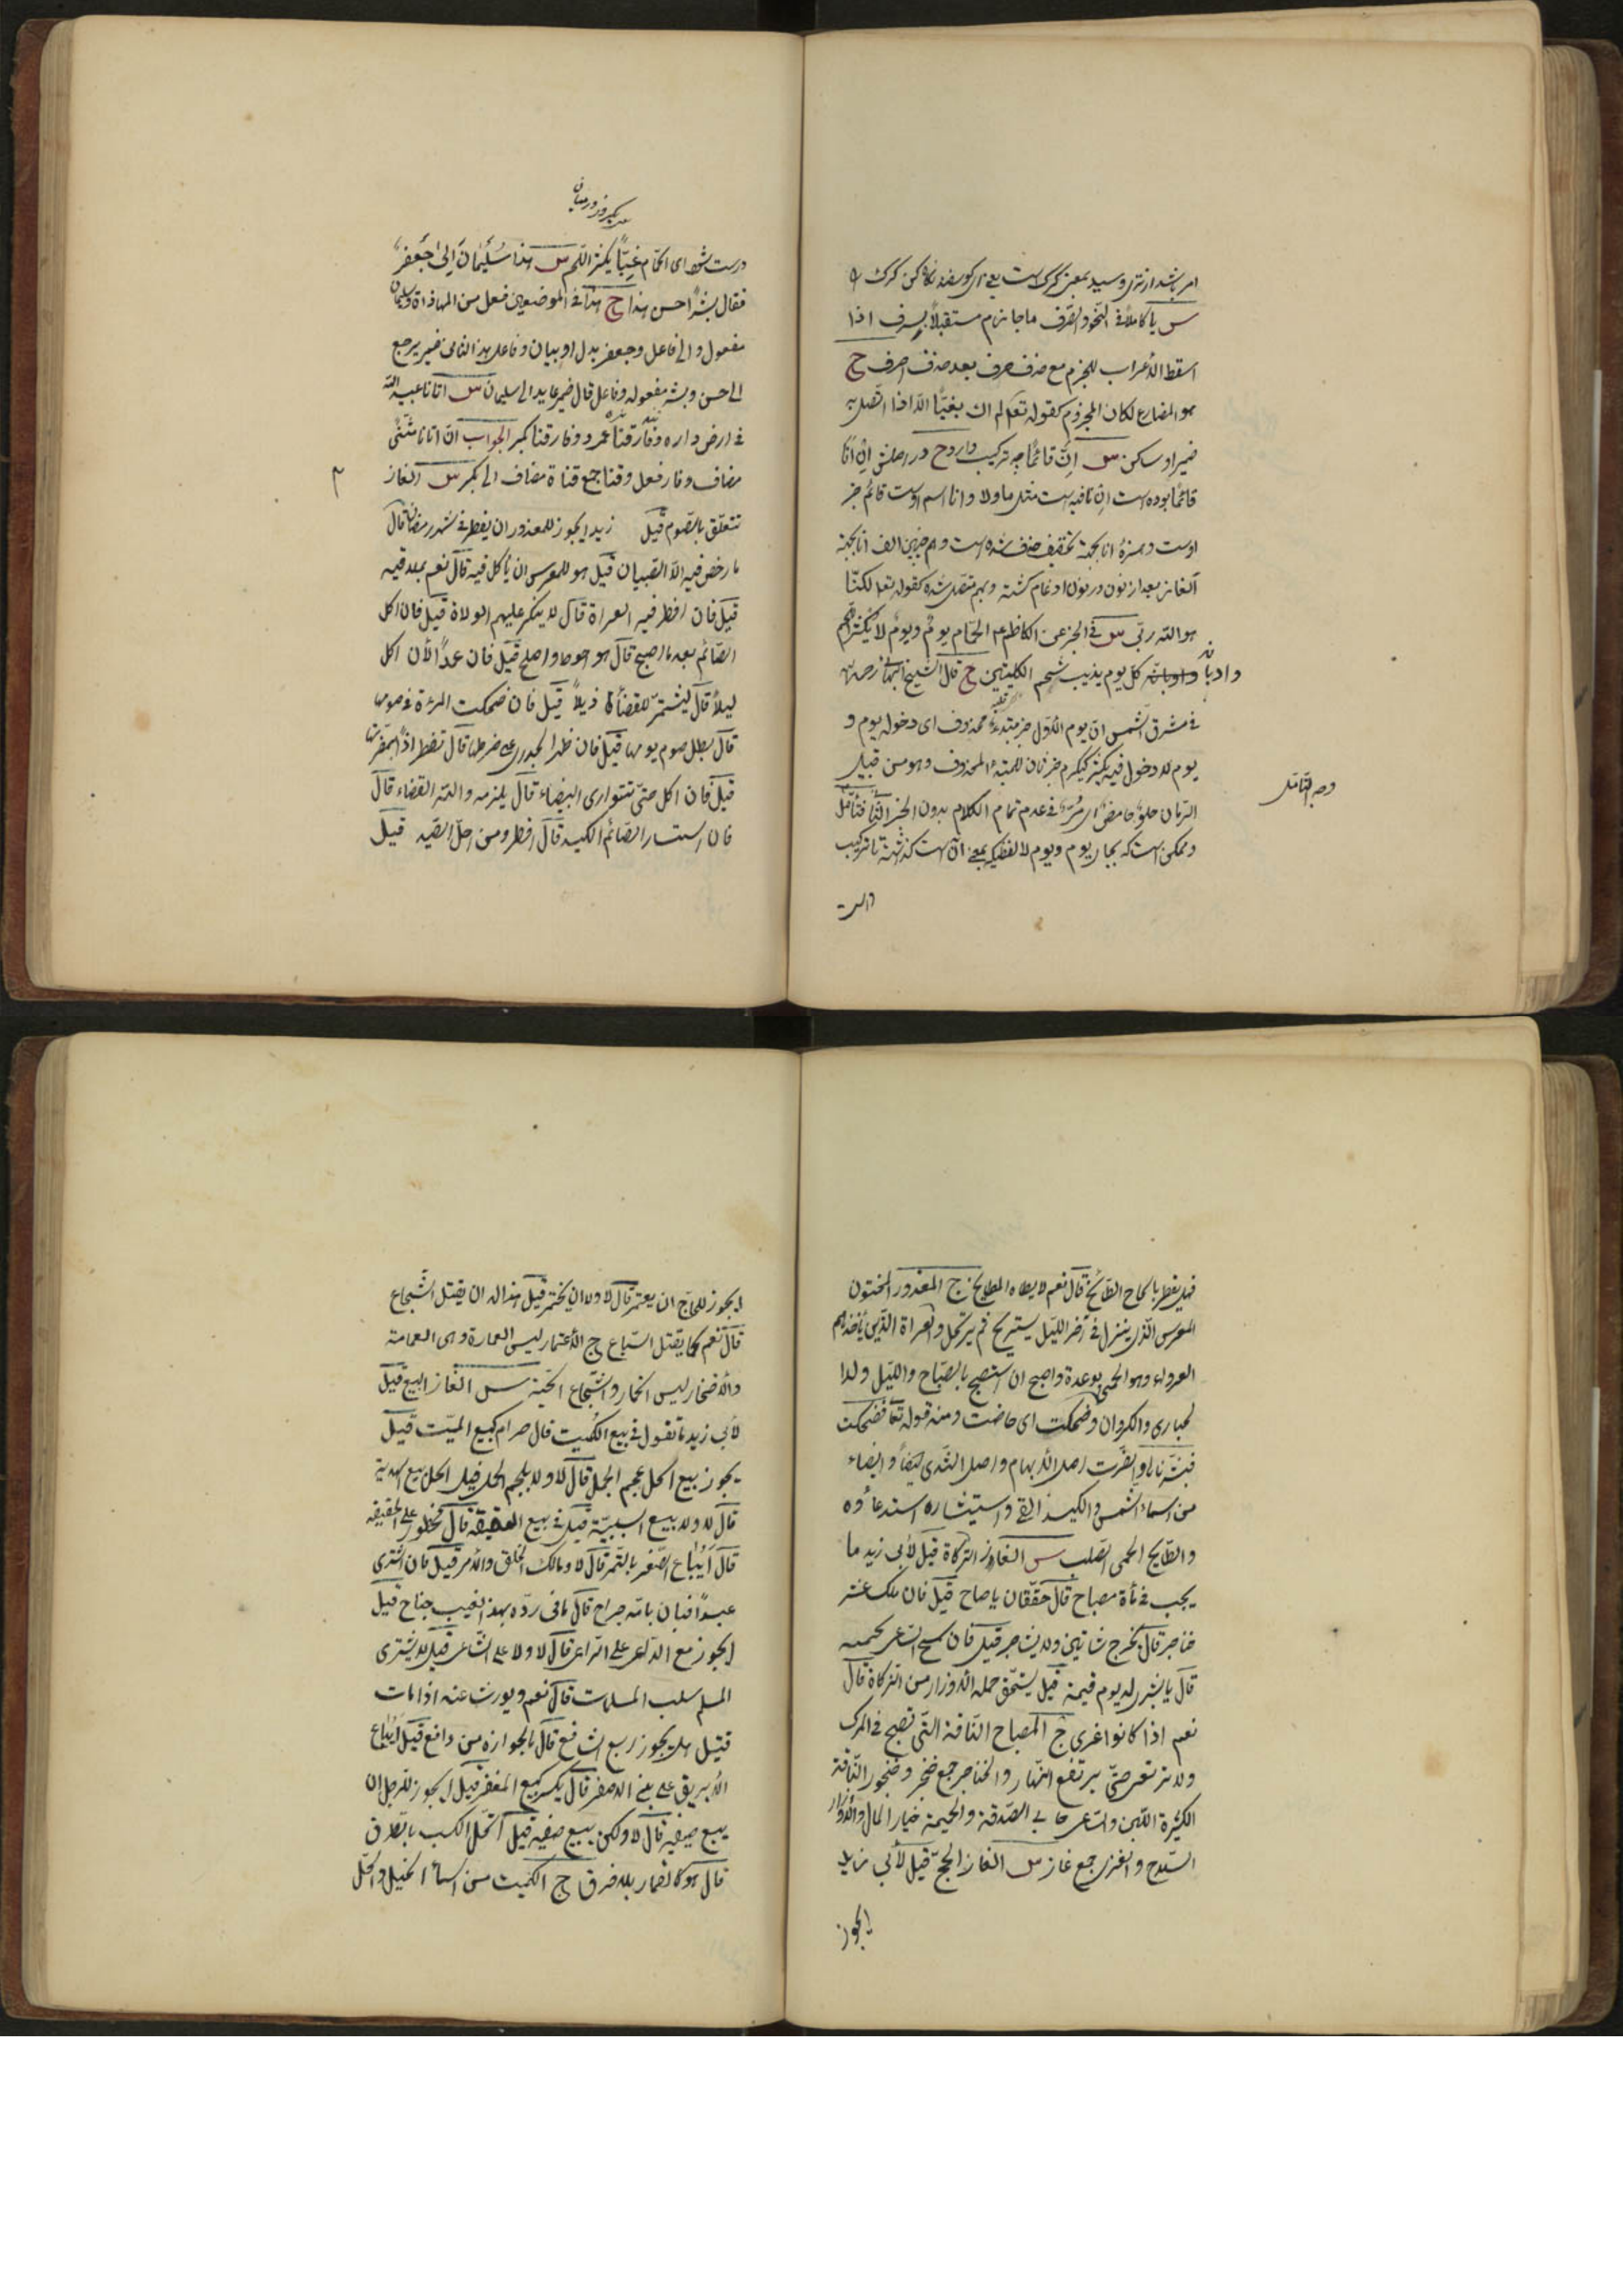 امر باشد از تری و سید بمعنی کرک است یعنی ای کوسفند نکاه کن کرک را
س یا کاملا فی النحو والصرف ما جازم مستقبلا بصرف اذا
اسقط الاعراب للجزم مع حذف حرف بعد حذف احرف ج
هو المضارع لکان المجزوم کقوله تعالی لم اک بغیّا الا اذا اتصل به
ضمیر او ساکن س اِنَّ قائمًا چه ترکیب دارد ج در اصلش اِن انا
قائمًا بوده است اِن نافیه است مثل ما ولا وانا اسم اوست قائم خبر
اوست و همزهٔ انا بجهة تخفیف حذف شده است و هم چنین الف انا بجهة
آلغاز بعد از نون در نون ادغام کشته و بهم متصل شده کقوله تعالی لکنّا
هو الله ربّی س فی الخبر عن الکاظم ع الحمّام یوم ویوم لا یکثر اللحم
وادمانه کلّ یوم یذیب شحم الکلیتین ج قال الشیخ البهائی رحمه الله
فی مشرق الشمس انّ یوم الاوّل خبر مبتدء محذوف ای دخوله یوم و
یوم لا دخول فیه یکثر کیکرم خبر ثان للمبتدء المحذوف وهو من قبیل
الرمان حلو حامض ای مُزّ فی عدم تمام الکلام بدون الخبر الثانی فتأمّل
وجه التأمّل
وممکن است که یجار یوم ویوم لا لفظیکه بمعنی آن است کذشته تا ترکیب
درست
یکروز در میان
درست شود ای الحمّام غِبًّا یکثر اللحم س هذا سُلَیمانَ اِلیٰ جَعفر
فقال بشرًا احسن هذا ج هذا فی الموضعین فعل من المهاذاة وسلیمان
مفعول والی فاعل وجعفر بدل او بیان وفاعل هذا الثانی ضمیر یرجع
الی احسن وبشر مفعوله وفاعل قال ضمیر عاید الی سلیمان س اتانا عبید الله
فی ارض داره وفارقنا عمرد وفارقنا بکر الجواب انّ اتانا مثنّی
مضاف وفار فعل وقنا جمع قناة مضاف الی بکر س الغاز
تتعلّق بالصّوم قیل زید ایجوز للمعذور ان یفطر فی شهر رمضان قال
ما رخص فیه الا الصبیان قیل هو للمعرس ان یأکل فیه قال نعم بملء فیه
قیل فان افطر فیه العراة قال لا ینکر علیهم الولاة قیل فان اکل
الصّائم بعد ما اصبح قال هو احوط واصلح قیل فان عمدًا لأن اکل
لیلا قال لیشتمر للقضاء ذیلا قیل فان ضحکت المرءة فی صومها
قال بطل صوم یومها قیل فان ظهر الجدری علی ضرتها قال تفطر اذا بمضرتها
قیل فان اکل حتی تتواری البیضاء قال یلزمه والله القضاء قال
فان استثار الصّائم الکید قال افطر ومن احلّ الصّید قیل
فهل یفطر بالحاح الطّابخ قال نعم لا بطاه المطابخ ج المعذور المختون
المعرس الّذی ینزل فی آخر اللیل یستریح ثم یرتحل والعراة الذین تأخذهم
العرواء وهو الحمّی بوعدة واصبح ان استصبح بالصّباح واللیل ولد
الحباری والکروان وضحکت ای حاضت ومنه قوله تعالی فضحکت
فبشّرناها والضرّت اصل الابهام واصل الثدی ایضا والبیضاء
من اسماء الشمس والکید القیء واستیثاره استدعاؤه
والطّابخ الحمی الصّلب س الغاز الزکاة قیل لأبی زید ما
یجب فی مأة مصباح قال حقّتان یا صاح قیل فان ملک عشر
خناجر قال یخرج شاتین ولا یشاجر قیل فان سمح الساعی بحمیمه
قال یا بشری له یوم قیمة قیل یستحقّ حملة الاوزار من الزکاة قال
نعم اذا کانوا غزی ج المصباح النّاقة التی تصبح فی المبرک
ولا ترتعی حتّی یرتفع النهار والخناجر جمع خنجر وخنجور النّاقة
الکثیرة اللّبن والساعی جابی الصّدقة والحمیمة خیار المال والاوزار
السّلاح والغزی جمع غاز س الغاز الحجّ قیل لأبی زید
ایجوز
ایجوز للحاجّ ان یعتمر قال لا ولا ان یختمر قیل هذا له ان یقتل الشّجاع
قال نعم کما یقتل السّباع ج الأعتمار لیس العمارة وهی العمامة
والأختمار لیس الخمار والشّجاع الحیّة س الغاز البیع قیل
لأبی زید ما تقول فی بیع الکمیت قال حرام کبیع المیّت قیل
ایجوز بیع الخلّ بلحم الجمل قال لا ولا بلحم الحمل قیل ایحل بیع الهدیة
قال لا ولا بیع السبیّة قیل فی بیع العقیقة قال محظور علی الحقیقة
قال ایباع الصّقر بالتّمر قال لا ومالک الخلق والأمر قیل فان اشتری
عبدًا فبان بامّه جراح قال ما فی ردّه بهذا العیب جناح قیل
ایجوز بیع الداعی علی الراعی قال لا ولا علی السّاعی قیل ایشتری
المسلم سلب المسلمات قال نعم ویورث عنه اذا مات
قیل هل یجوز بیع الشافع قال ما لجوازه من دافع قیل ایباع
الأبریق علی بنی الاصفر قال یکره کبیع المغفر قیل ایجوز للرجل ان
یبیع صیفیه قال لا ولکن یبیع صفیه قیل آتحل الکسب بالطّرق
قال هو کالقمار بلا فرق ج الکمیت من اسمأ الخیل والخلّ